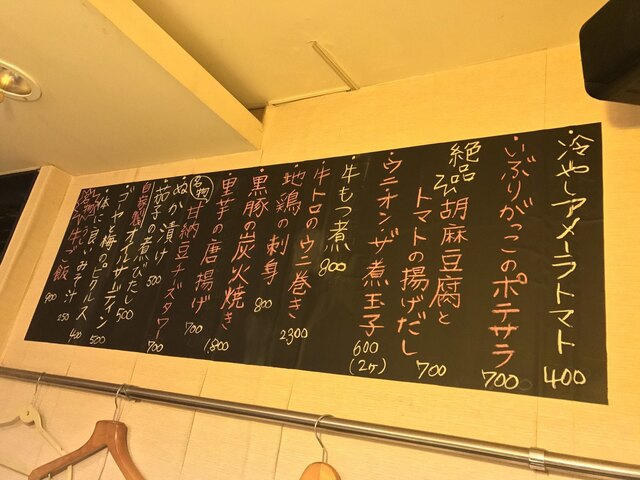 ・冷やしアメーラトマト 400
・いぶりがっこのポテサラ 700
絶品 胡麻豆腐と
トマトの揚げだし 700
・ウニオンザ煮玉子 600
(2ヶ)
・牛もつ煮 800
・牛トロのウニ巻き 2300
・地鶏の刺身 800
・黒豚の炭火焼き 1,800
・里芋の唐揚げ 700
名物 甘納豆チーズタワー 700
・ぬか漬け 500
・茄子の煮びたし 500
自家製オイルサーディン 500
・ゴーヤと梅のピクルス 400
・体に良いみそ汁 250
ご飯 900